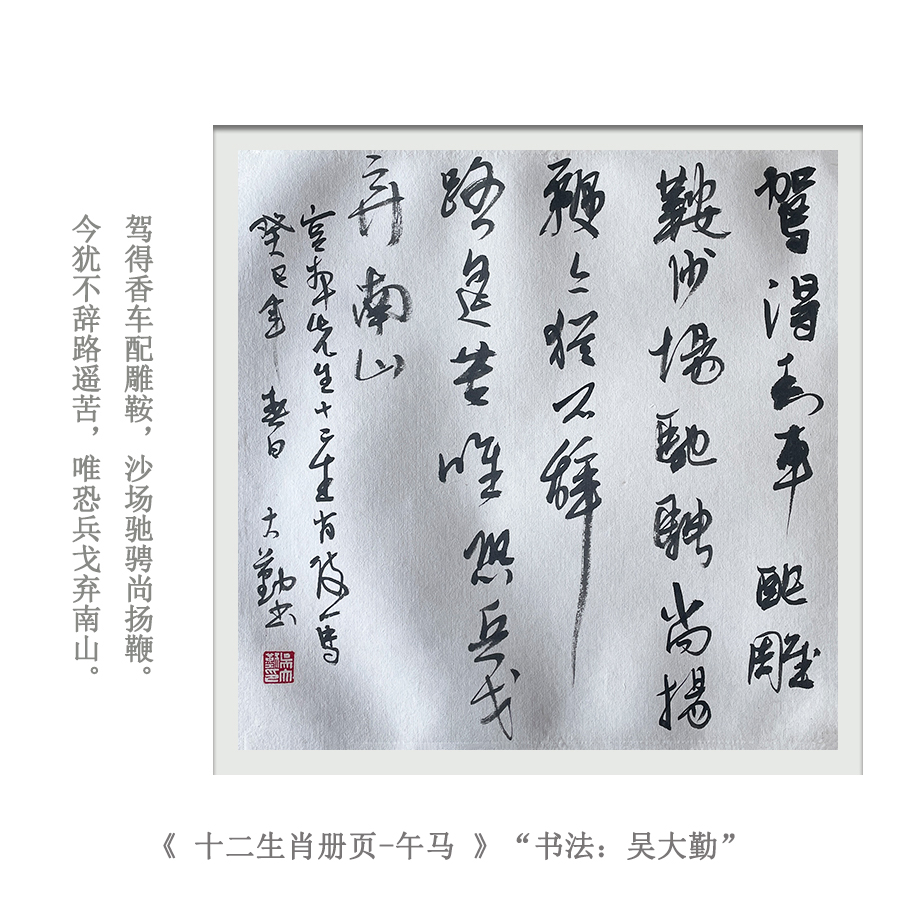 駕得香車配雕
鞍沙場馳騁尚揚
鞭今猶不辭
路遥苦唯恐兵戈
弃南山
先生十二生肖
癸巳年 春日 大勤书
吴大勤印
驾得香车配雕鞍，沙场驰骋尚扬鞭。
今犹不辞路遥苦，唯恐兵戈弃南山。
《 十二生肖册页-午马 》“书法：吴大勤”